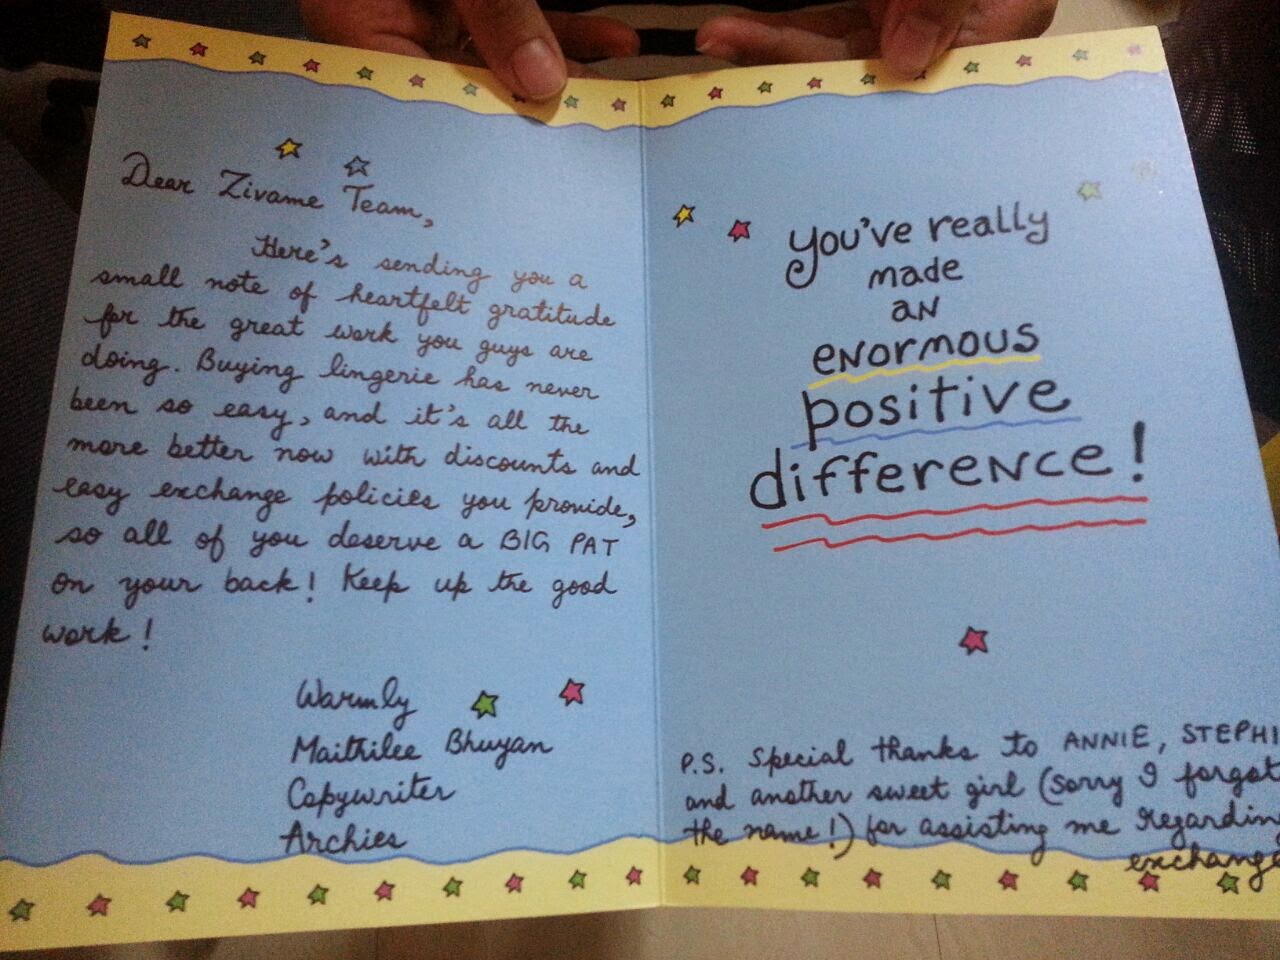 Dear Zivame Team,
Here's sending you a
small note of heartfelt gratitude
for the great work you guys are
doing. Buying lingerie has never
been so easy, and it's all the
more better now with discounts and
easy exchange policies you provide,
so all of you deserve a BIG PAT
on your back! Keep up the good
work!
Warmly
Maithilee Bhuyan
Copywriter
Archies
you've really
made
aN
eNormous
positive
differeNce!
P.S. Special thanks to ANNIE, STEPHI
and another sweet girl (sorry I forgot
the name!) for assisting me regardin
exchange